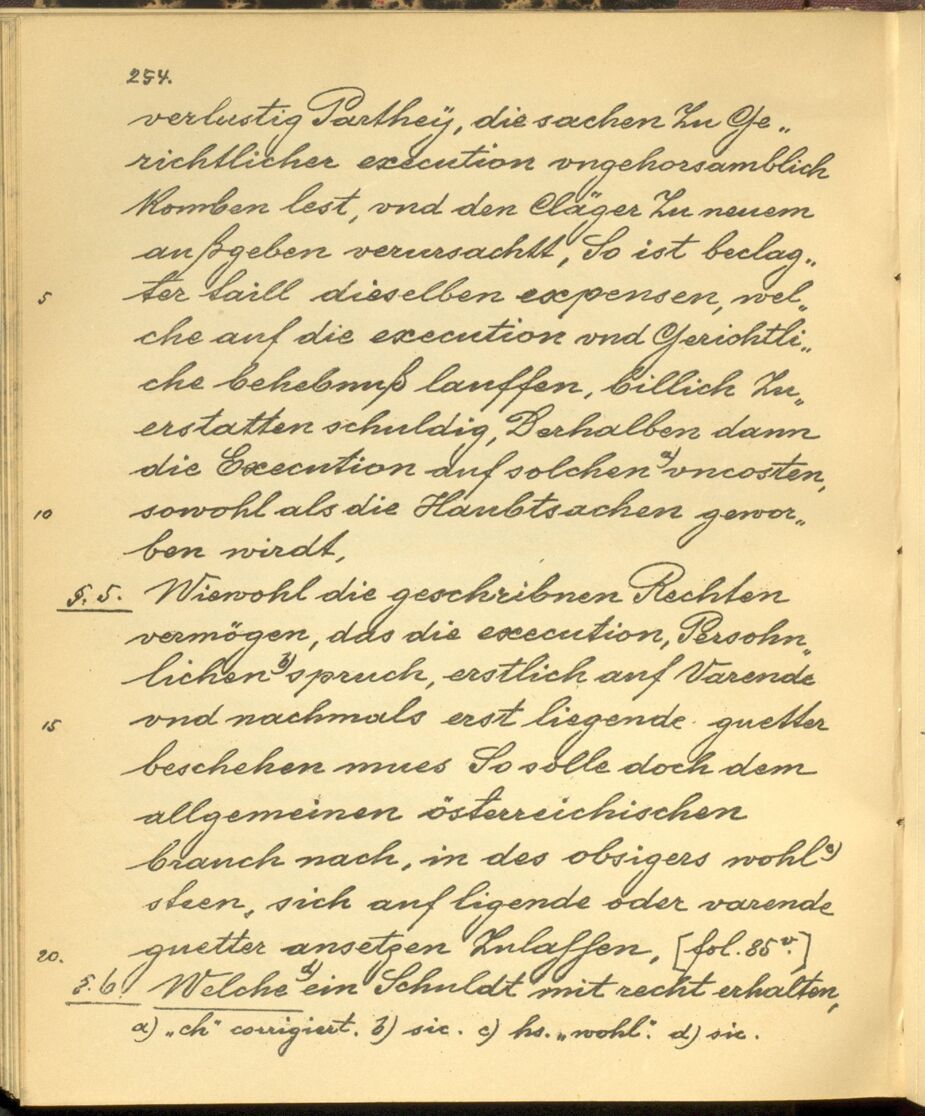 254.
verlustig Parthey, die sachen Zu Ge„
richtlicher execution vngehorsamblich
Komben lest, vnd den Cläger Zu neuem
außgeben verursachtt, So ist beclag„
5 ter taill dieselben expensen, wel„
che auf die execution vnd Gerichtli„
che behebnuß lauffen, billich Zu„
erstatten schuldig, Derhalben dann
die Execution auf solchen a) vncosten,
10 sowohl als die Haubtsachen gewor„
ben wirdt,
§. 5. Wiewohl die geschribnen Rechten
vermögen, das die execution, Persohn„
lichen b) spruch, erstlich auf Varende
15 vnd nachmals erst liegende guetter
beschehen mues So solle doch dem
allgemeinen österreichischen
brauch nach, in des obsigers wohl c)
steen, sich auf ligende oder varende
20. guetter ansetzen Zulassen, [fol. 85 v.]
§. 6. Welche d) ein Schuldt mit recht erhalten,
a) „ch" corrigiert. b) sic. c) hs. „wohl". d) sic.